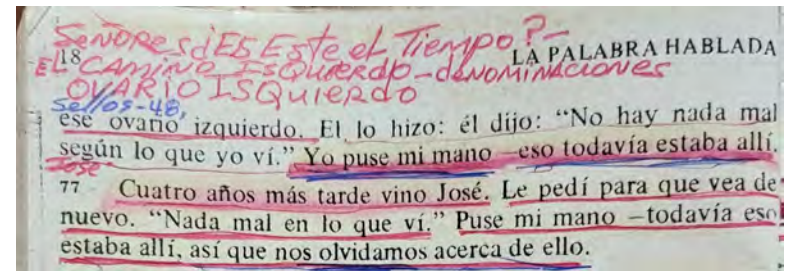 SEÑORES ¿ES Este el Tiempo?-
18 LA PALABRA HABLADA
EL CAMINO ISQUIERDO - deNOMINACIONES
OVARIO ISQUIERDO
Sellos-48,
ese ovario izquierdo. El lo hizo: él dijo: “No hay nada mal
según lo que yo ví.” Yo puse mi mano —eso todavía estaba allí.
José
77 Cuatro años más tarde vino José. Le pedí para que vea de
nuevo. “Nada mal en lo que ví.” Puse mi mano —todavía eso
estaba allí, así que nos olvidamos acerca de ello.